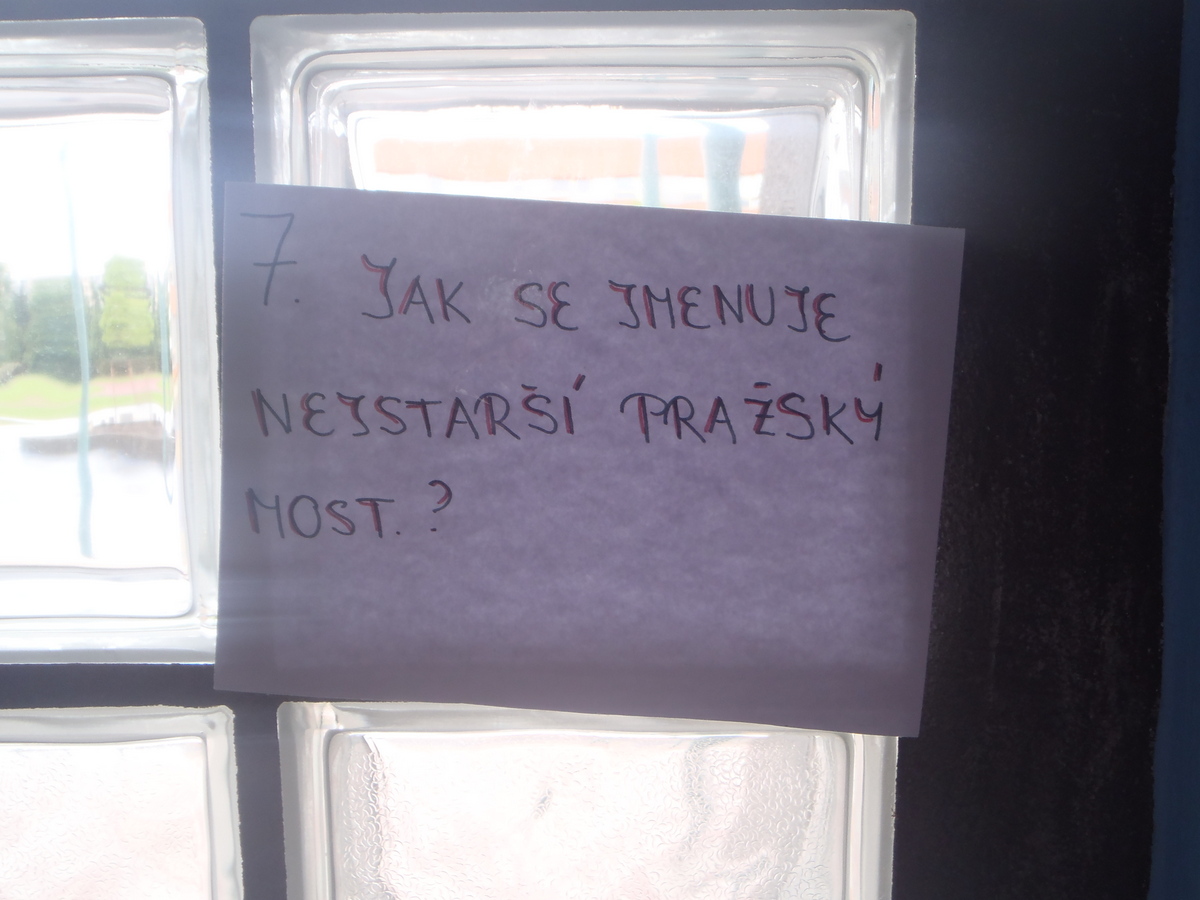 7. JAK SE JMENUJE
NEJSTARŠÍ PRAŽSKÝ
MOST.?